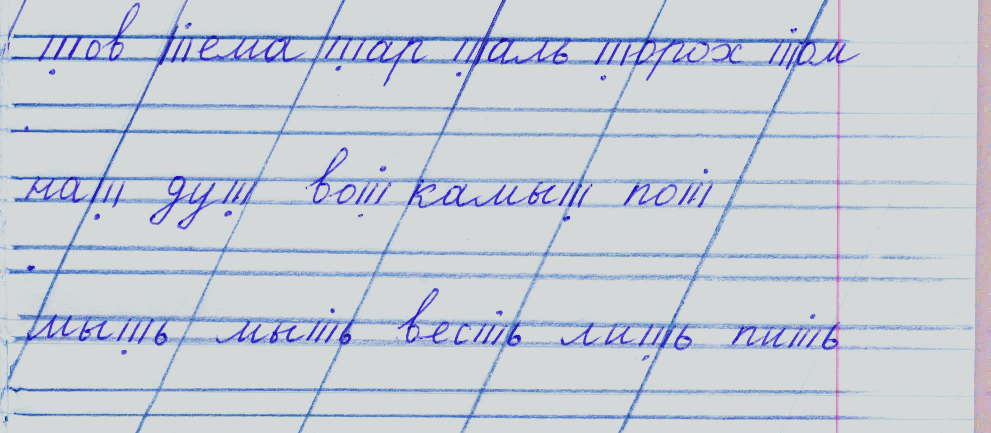 шов тема шар шаль шорох том
наш душ вот камыш пот
мышь мыть весть лишь пить